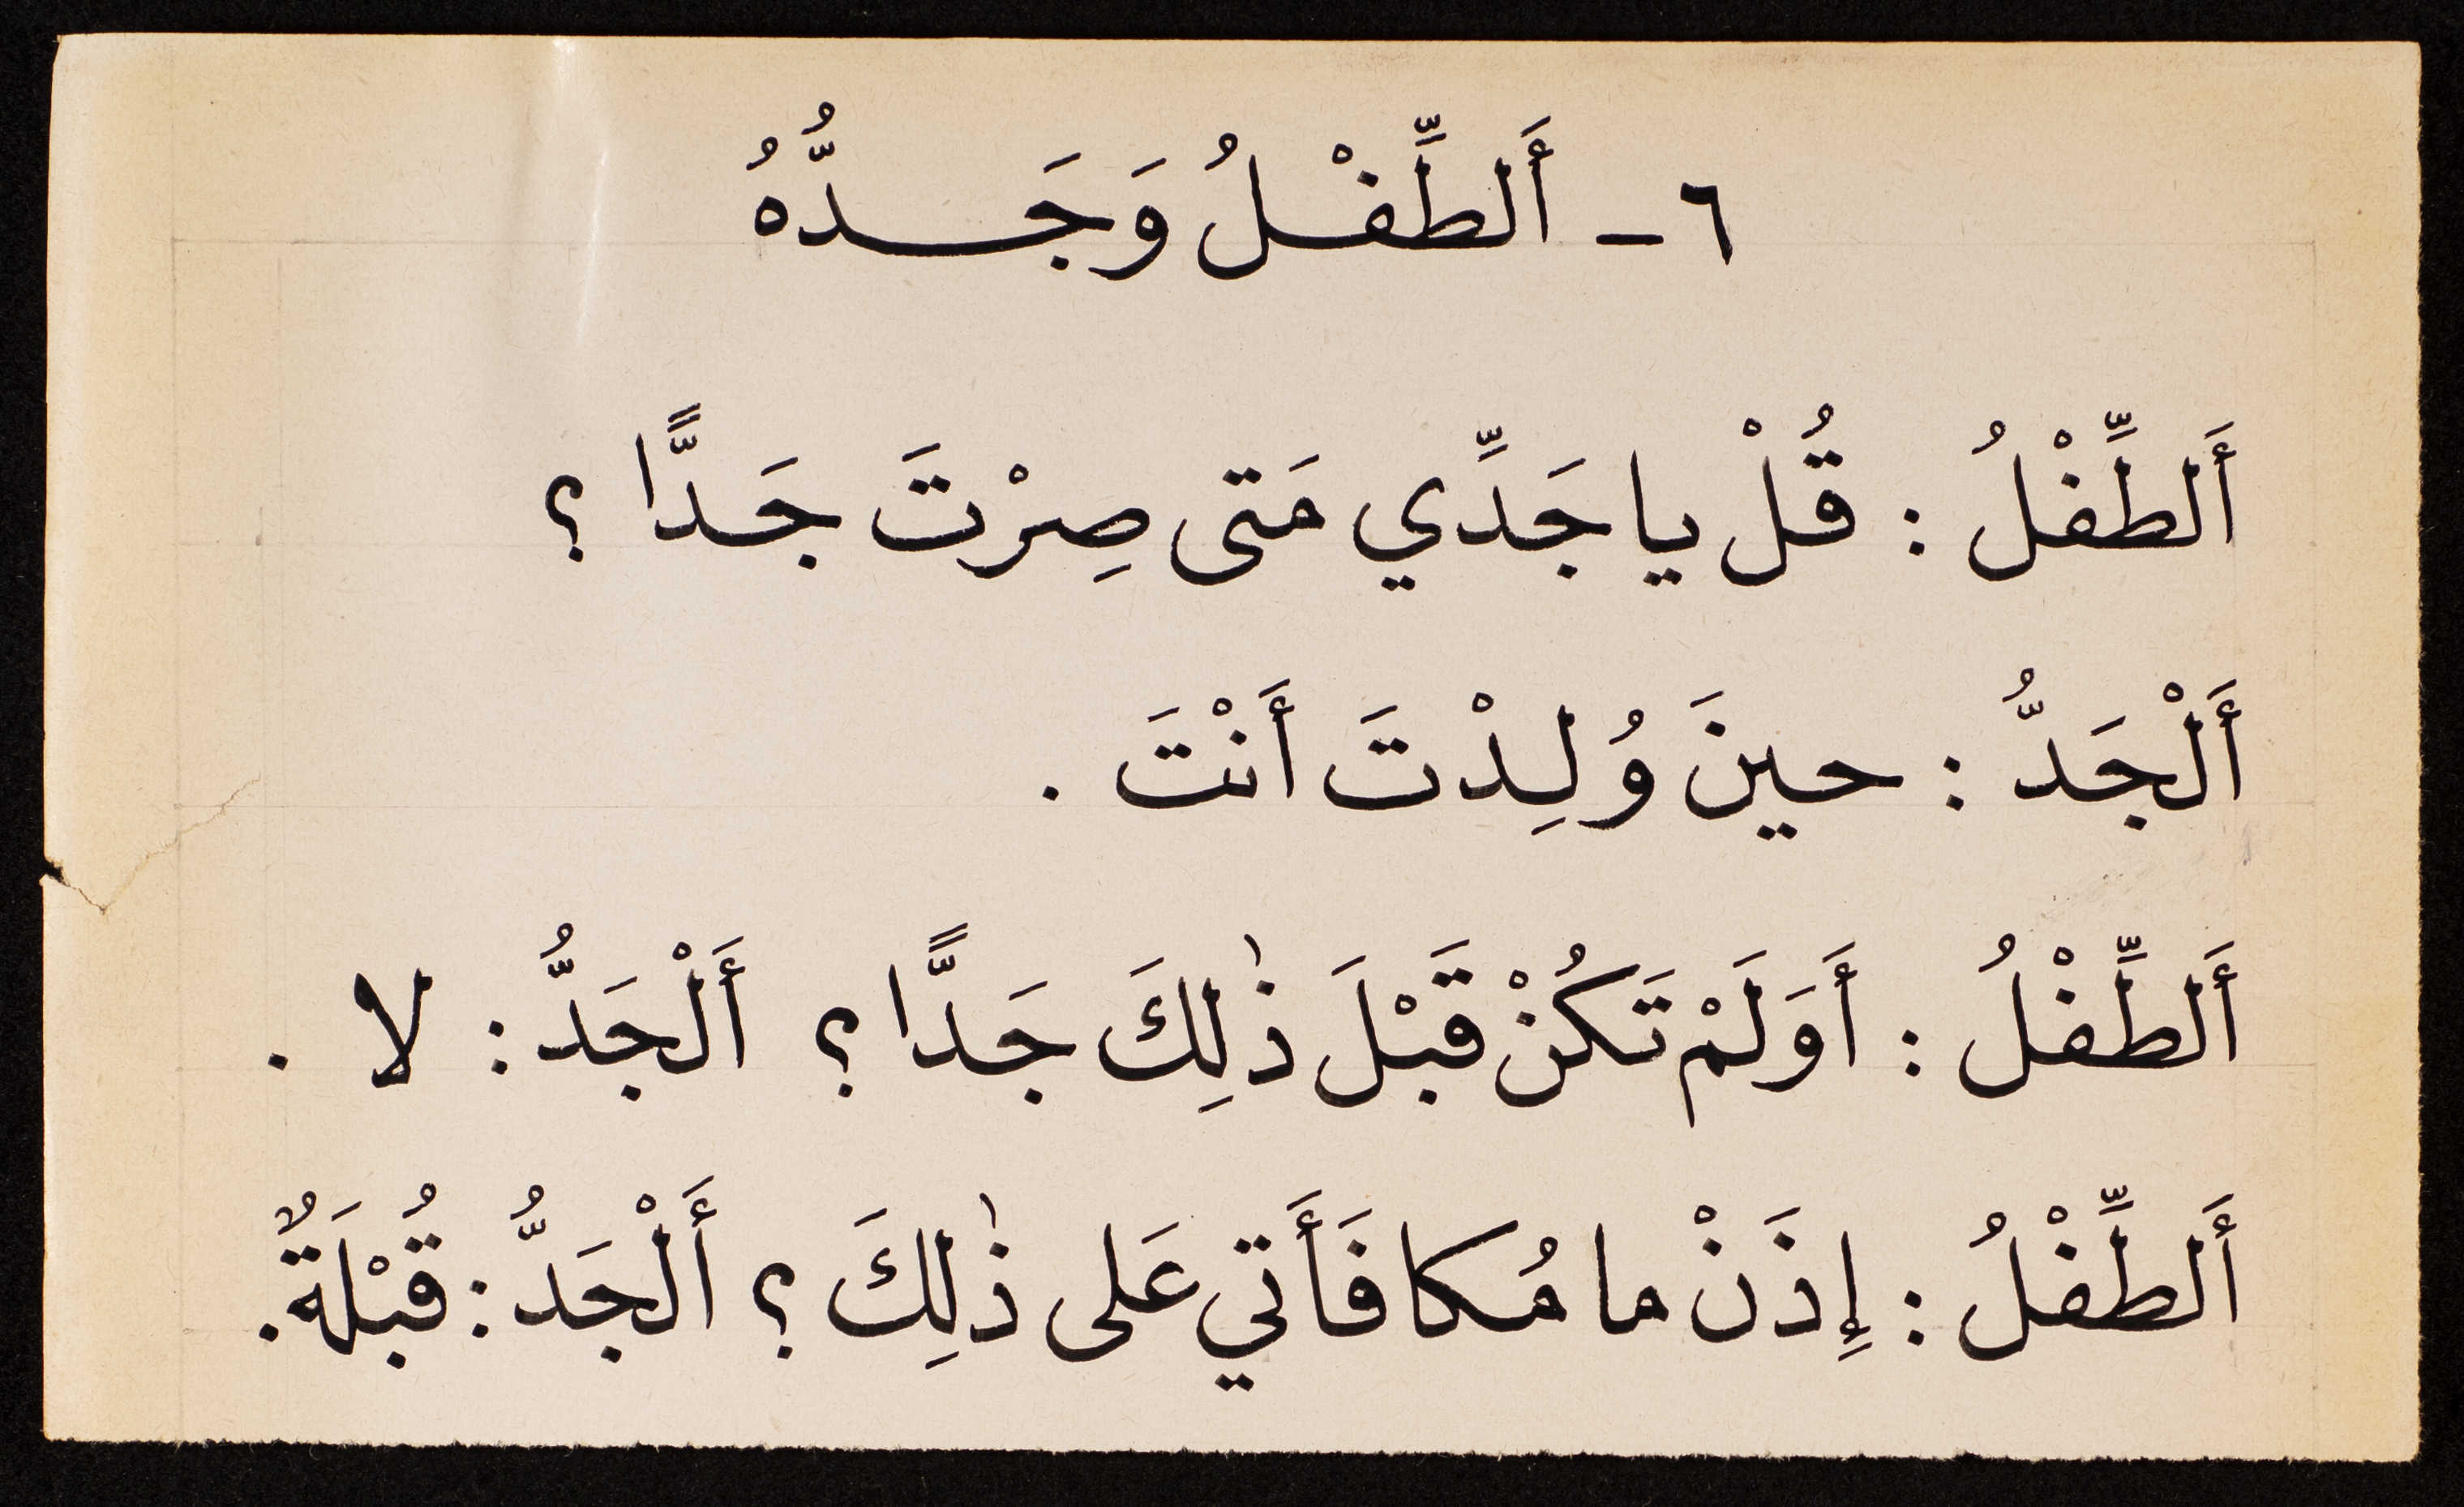 ٦ - أَلطِّفْلُ وَجَدُّهُ
أَلطِّفْلُ : قُلْ يا جَدِّي مَتى صِرْتَ جَدًّا ؟
أَلْجَدُّ : حينَ وُلِدْتَ أَنْتَ .
أَلطِّفْلُ : أَوَلَمْ تَكُنْ قَبْلَ ذٰلِكَ جَدًّا ؟ أَلْجَدُّ : لا .
أَلطِّفْلُ : إِذَنْ ما مُكافَأَتي عَلى ذٰلِكَ ؟ أَلْجَدُّ : قُبْلَةٌ .